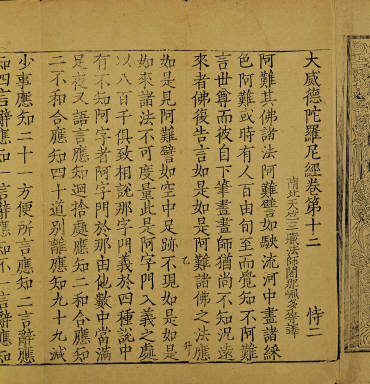 大威德陀羅尼經卷第十二 恃二
南北天竺三藏法師闍那崛多等譯
阿難其佛諸法阿難譬如駛流河中畫諸綵
色阿難或時有人百由旬至而覺知不阿難
言世尊而彼自下筆畫畫師猶尚不知況遠
來者佛復告言如是如是阿難諸佛之法應
如是見阿難譬如空中足跡不現如是如是
如來諸法不可度量此是阿字門入義之處
以八百千俱致相說那字門義於四種說中
有不知阿字者阿字門於那由他數中當滿
足夜叉語言應知迴捨處應知二和合應知
二不和合應知四十道別離應知九十九減
少事應知二十一方便所言應知二言辭應
知四言辭應知一言辭應知不二言辭應知